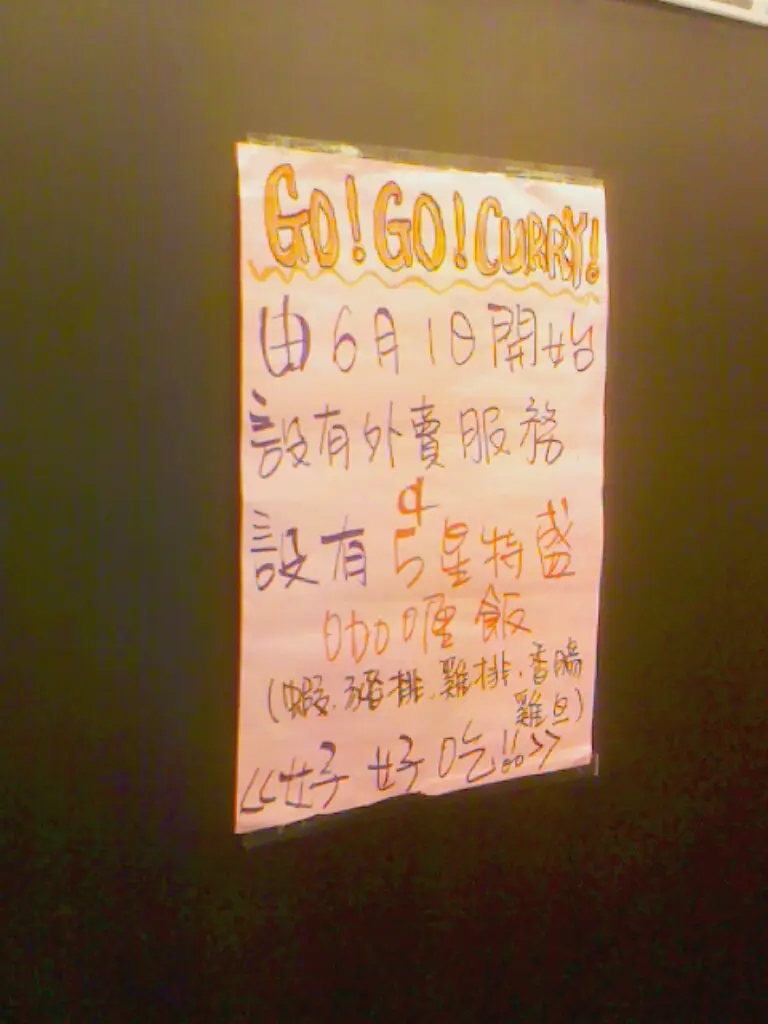 GO! GO! CURRY!
由6月1日開始
設有外賣服務
設有5星特盛
咖喱飯
(蝦.豬排.雞排.香腸
雞旦)
<<好好吃!!>>